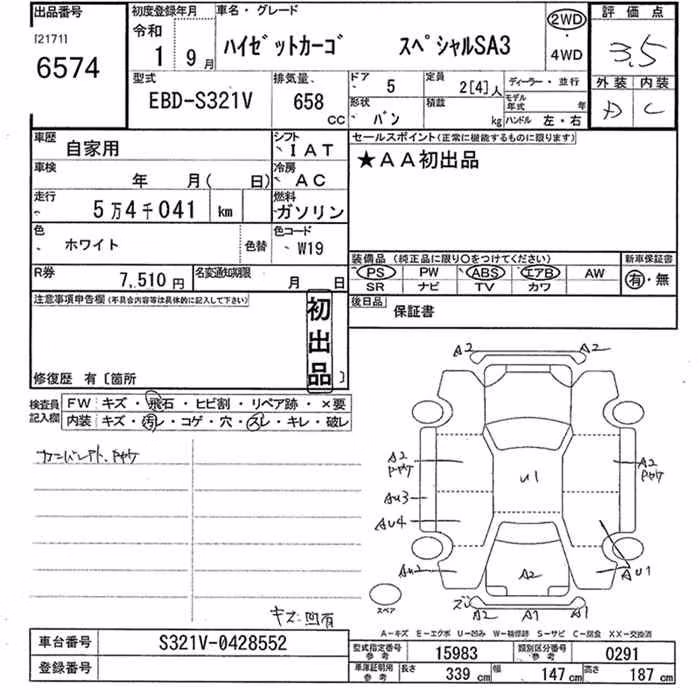 出品番号
[2171]
6574
初度登録年月
令和
1 9月
車名・グレード
ハイゼットカーゴ スペシャルSA3
2WD
・
4WD
評価点
3.5
外装 内装
D C
型式
EBD-S321V
排気量
658
CC
ドア
5
形状
バン
定員
2[4]人
積載
kg
ディーラー・並行
モデル年式 年
ハンドル 左・右
車歴
自家用
シフト
IAT
車検
年 月( 日)
冷房
AC
走行
5万4千041 km
燃料
ガソリン
色
ホワイト
色替
色コード
W19
R券
7,510円
名変通知期限
月 日
セールスポイント(正常に機能するものに限ります)
★AA初出品
装備品 (純正品に限り○をつけてください)
PS PW ABS エアB AW
SR ナビ TV カワ
新車保証書
有・無
後日品
保証書
注意事項申告欄(不具合内容等は具体的に記入して下さい)
初出品
修復歴 有〔箇所 〕
検査員
記入欄
FW キズ・飛石・ヒビ割・リペア跡・×要
内装 キズ・汚レ・コゲ・穴・スレ・キレ・破レ
キズ凹有
A2 A2
A2 A2
Au3 U1
Au4
Au1
A2
A2 A1 A1
スペア
A-キズ E-エクボ U-凹み W-補修跡 S-サビ C-腐食 XX-交換済
車台番号
S321V-0428552
登録番号
型式指定番号
参考
15983
類別区分番号
参考
0291
車庫証明用
参考
長さ 339 cm 幅 147 cm 高さ 187 cm